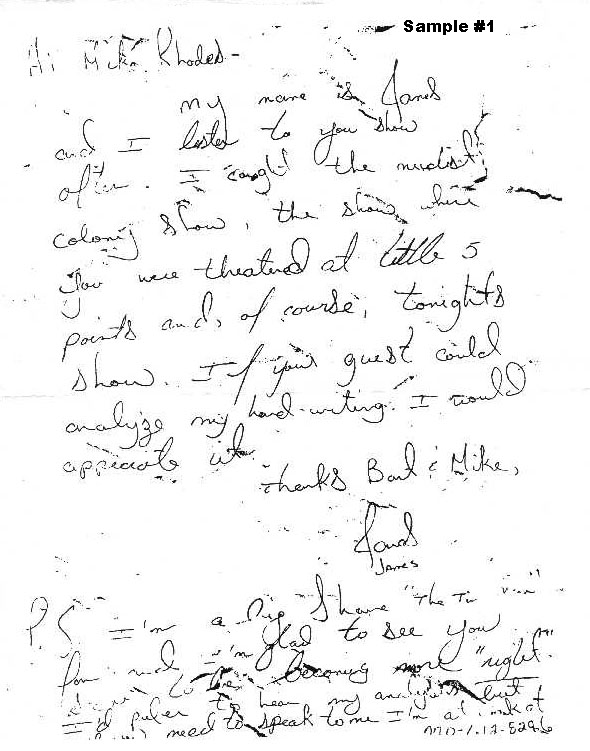 Sample #1
Hi Mike Rhodes-
My name is James
and I listen to you show
often. I caught the nudist
colony show, the show where
you were theatened at little 5
points and, of course, tonights
show. If your guest could
analyze my hand-writing I would
appriciate it
thanks Bart & Mike,
James
James
P.S I'm a big "The
and I'm glad to see you
becoming more "right"
I'd prefer to hear my analysis but
need to speak to me I'm at at